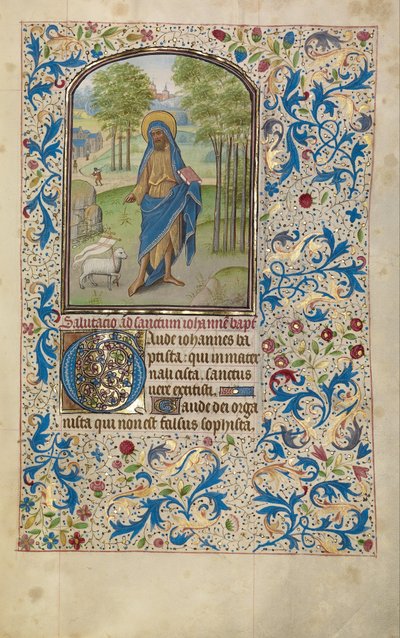 Salutacio ad sanctum iohanne bapt
Gaude iohannes ba
ptista: qui in mater
nali cista. sanctus
uere extitisti.
Gaude dei orga
nista qui non est falsus sophista.